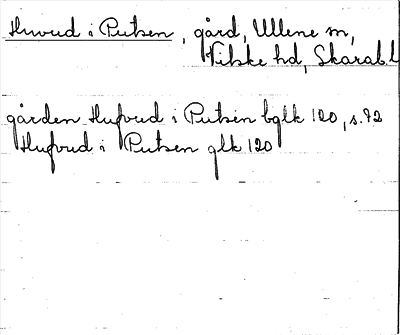 Huvud i Putsen, gård, Ullene sn,
Vilske hd, Skarab. l
gården Hufvud i Putsen bglk 120, s. 92
Hufvud i Putsen glk 120